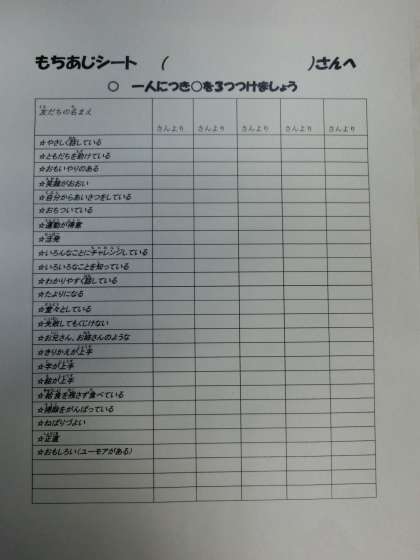 もちあじシート （　　　　　　　　　　）さんへ
○ 一人につき○を３つつけましょう
友だちの名まえ さんより さんより さんより さんより さんより
☆やさしく話している
☆ともだちを助けている
☆おもいやりのある
☆笑顔がおおい
☆自分からあいさつをしている
☆おちついている
☆運動が得意
☆活発
☆いろんなことにチャレンジしている
☆いろいろなことを知っている
☆わかりやすく話している
☆たよりになる
☆堂々としている
☆失敗してもくじけない
☆お兄さん、お姉さんのような
☆きりかえが上手
☆字が上手
☆絵が上手
☆給食を残さず食べている
☆掃除をがんばっている
☆ねばりづよい
☆正直
☆おもしろい（ユーモアがある）